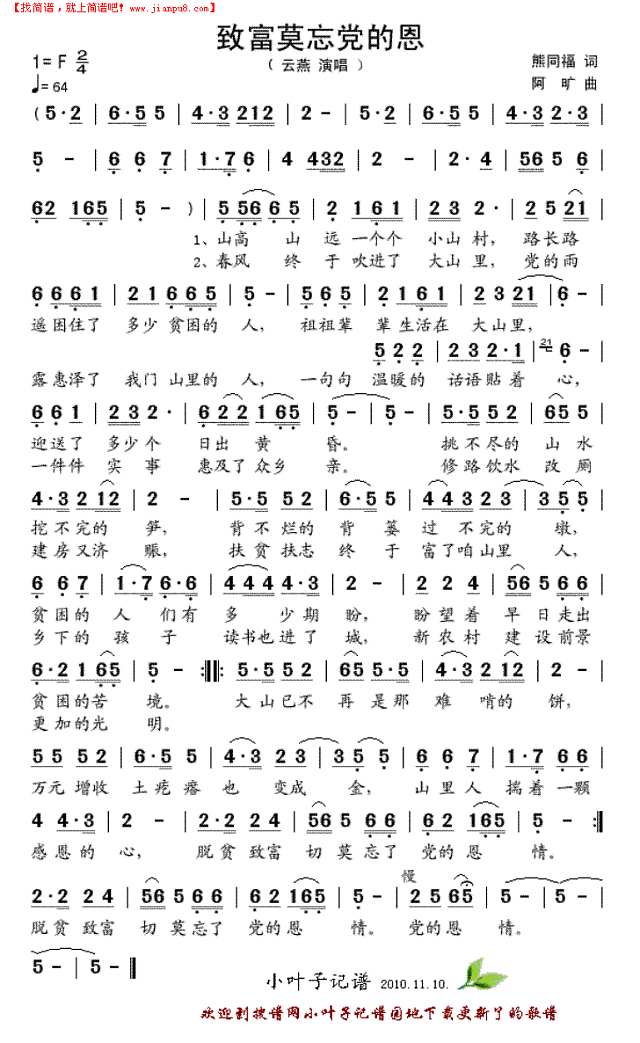 【找简谱，就上简谱吧！www.jianpu8.com】
致富莫忘党的恩
（ 云燕 演唱 ）
1= F 2/4
♩= 64
熊同福 词
阿 旷 曲
( 5·2 | 6·5 5 | 4·3 212 | 2 - | 5·2 | 6·5 5 | 4·3 2·3 |
5 - | 6 6 7 | 1·7 6 | 4 432 | 2 - | 2·4 | 56 5 6 |
62 165 | 5 - ) | 5 56 6 5 | 2 161 | 23 2· | 2 5 21 |
1、山高 山 远 一个个 小山 村， 路长路
2、春风 终 于 吹进了 大山 里， 党的雨
6 661 | 21 665 | 5 - | 5 65 | 2161 | 2 3 221 | 6 - |
遥困住了 多少 贫困的 人， 祖祖辈 辈生活在 大山里，
5 22 | 23 2·1 | 21 6 - |
露惠泽了 我们 山里的 人， 一句句 温暖的 话语贴着 心，
6 61 | 232· | 622 165 | 5 - | 5 - | 5·5 52 | 65 5 |
迎送了 多少个 日出 黄 昏。 挑不尽的 山水
一件件 实事 惠及了众乡 亲。 修路饮水 改厕
4·3 212 | 2 - | 5·5 52 | 6·5 5 | 44323 | 355 |
挖不完的 笋， 背不烂的 背 篓 过 不完的 墩，
建房又济 赈， 扶贫扶志 终 于 富了咱山里 人，
6 6 7 | 1·7 6·6 | 444 4·3 | 2 - | 2 2 4 | 56 566 |
贫困的 人 们有 多 少期 盼， 盼望着 早日走出
乡下的 孩 子 读书也进了 城， 新农村 建设前景
6·2 165 | 5 - :||: 5·5 52 | 65 5·5 | 4·3 212 | 2 - |
贫困的苦 境。 大山已不 再是那 难 啃的 饼，
更加的光 明。
55 52 | 6·5 5 | 4·3 23 | 3 5 5 | 6 6 7 | 1·7 66 |
万元 增收 土疙 瘩 也 变成 金， 山里人 揣着一颗
4 4·3 | 2 - | 2·2 24 | 56 5 66 | 62 165 | 5 - :||
感恩的 心， 脱贫致富 切莫忘了 党的恩 情。
慢
2·2 24 | 56 5 66 | 62 165 | 5 - | 2 5 65 | 5 - | 5 - |
脱贫 致富 切 莫忘了 党的恩 情。 党的恩 情。
5 - | 5 - ||
小叶子记谱 2010.11.10.
欢迎到搜谱网小叶子记谱园地下载更新了的歌谱